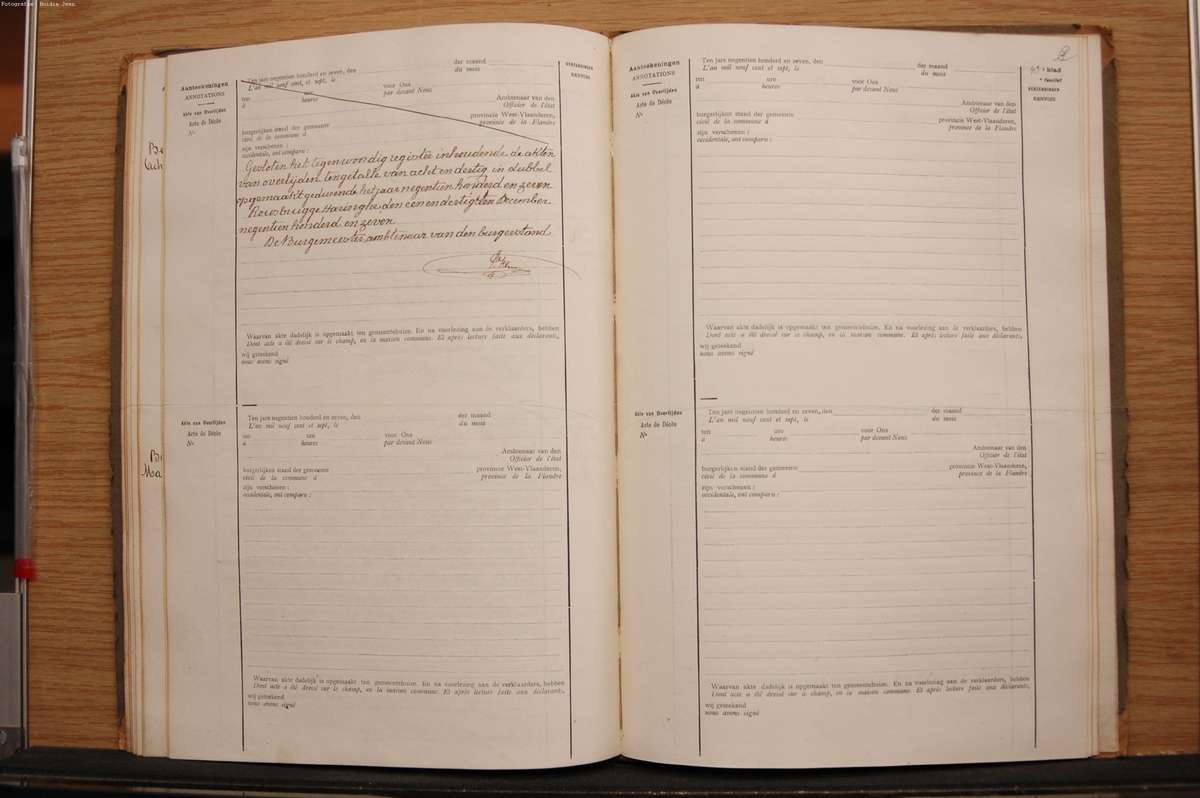 Fotografie: Buidin Jean
Aanteekeningen
ANNOTATIONS
Akte van Overlijden
Acte de Décès
N°
Ten jare negentien honderd en zeven, den der maand
L'an mil neuf cent et sept, le du mois
ten ure voor Ons
à heures par devant Nous
Ambtenaar van den
Officier de l'état
burgerlijken stand der gemeente provincie West-Vlaanderen,
civil de la commune d province de la Flandre
zijn verschenen :
occidentale, ont comparu :
VERZENDINGEN
RENVOIS
Gesloten het tegenwoordig register inhoudende de akten
van overlijden ten getalle van acht en dertig in dubbel
opgemaakt gedurende het jaar negentien honderd en zeven
Rousbrugge Haringhe, den een en dertigsten December
negentien honderd en zeven
De Burgemeester ambtenaar van den burgerstand
Waarvan akte dadelijk is opgemaakt ten gemeentehuize. En na voorlezing aan de verklaarders, hebben
Dont acte a été dressé sur le champ, en la maison commune. Et après lecture faite aux déclarants,
wij geteekend
nous avons signé
Akte van Overlijden
Acte de Décès
N°
Ten jare negentien honderd en zeven, den der maand
L'an mil neuf cent et sept, le du mois
ten ure voor Ons
à heures par devant Nous
Ambtenaar van den
Officier de l'état
burgerlijken stand der gemeente provincie West-Vlaanderen,
civil de la commune d province de la Flandre
zijn verschenen :
occidentale, ont comparu :
Waarvan akte dadelijk is opgemaakt ten gemeentehuize. En na voorlezing aan de verklaarders, hebben
Dont acte a été dressé sur le champ, en la maison commune. Et après lecture faite aux déclarants,
wij geteekend
nous avons signé
Aanteekeningen
ANNOTATIONS
Akte van Overlijden
Acte de Décès
N°
Ten jare negentien honderd en zeven, den der maand
L'an mil neuf cent et sept, le du mois
ten ure voor Ons
à heures par devant Nous
Ambtenaar van den
Officier de l'état
burgerlijken stand der gemeente provincie West-Vlaanderen,
civil de la commune d province de la Flandre
zijn verschenen :
occidentale, ont comparu :
blad
feuillet
VERZENDINGEN
RENVOIS
Waarvan akte dadelijk is opgemaakt ten gemeentehuize. En na voorlezing aan de verklaarders, hebben
Dont acte a été dressé sur le champ, en la maison commune. Et après lecture faite aux déclarants,
wij geteekend
nous avons signé
Akte van Overlijden
Acte de Décès
N°
Ten jare negentien honderd en zeven, den der maand
L'an mil neuf cent et sept, le du mois
ten ure voor Ons
à heures par devant Nous
Ambtenaar van den
Officier de l'état
burgerlijken stand der gemeente provincie West-Vlaanderen,
civil de la commune d province de la Flandre
zijn verschenen :
occidentale, ont comparu :
Waarvan akte dadelijk is opgemaakt ten gemeentehuize. En na voorlezing aan de verklaarders, hebben
Dont acte a été dressé sur le champ, en la maison commune. Et après lecture faite aux déclarants,
wij geteekend
nous avons signé